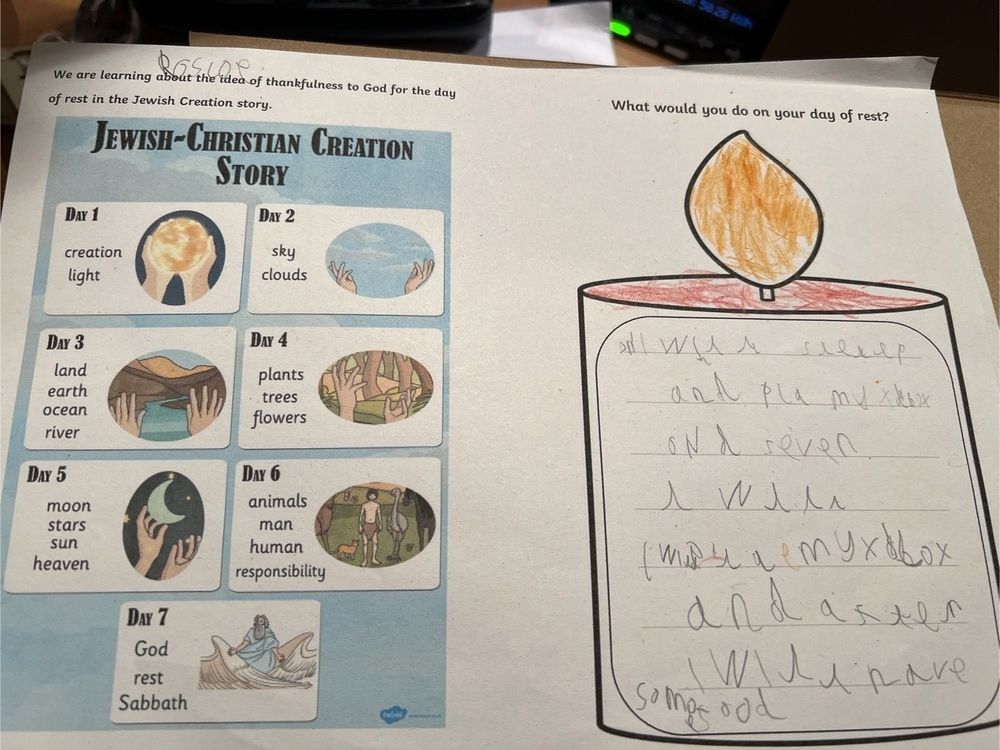 We are learning about the idea of thankfulness to God for the day
of rest in the Jewish Creation story.
JEWISH-CHRISTIAN CREATION
STORY
DAY 1
creation
light
DAY 2
sky
clouds
DAY 3
land
earth
ocean
river
DAY 4
plants
trees
flowers
DAY 5
moon
stars
sun
heaven
DAY 6
animals
man
human
responsibility
DAY 7
God
rest
Sabbath
twinkl
What would you do on your day of rest?
and pla my xbox
and seven
my xbox
and
have
som